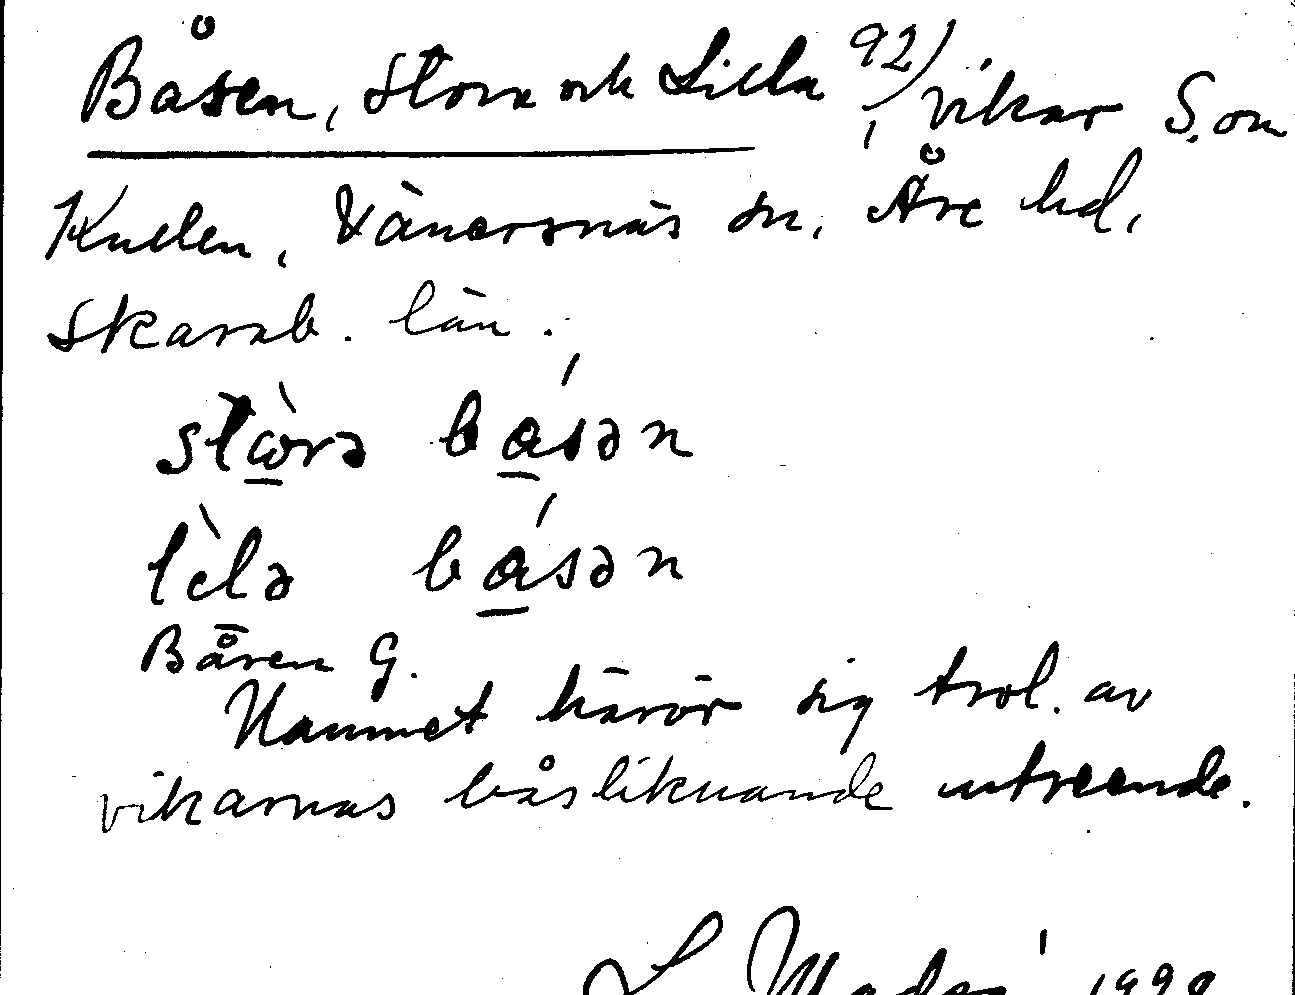 Båsen, Stora och Lilla 92), vikar S. om
Kullen, Vänersnäs sn, Åse hd,
Skarab. län.
stɷ̀rə básən
lìlə básən
Båsen G.
Namnet härör sig trol. av
vikarnas båsliknande utseende.